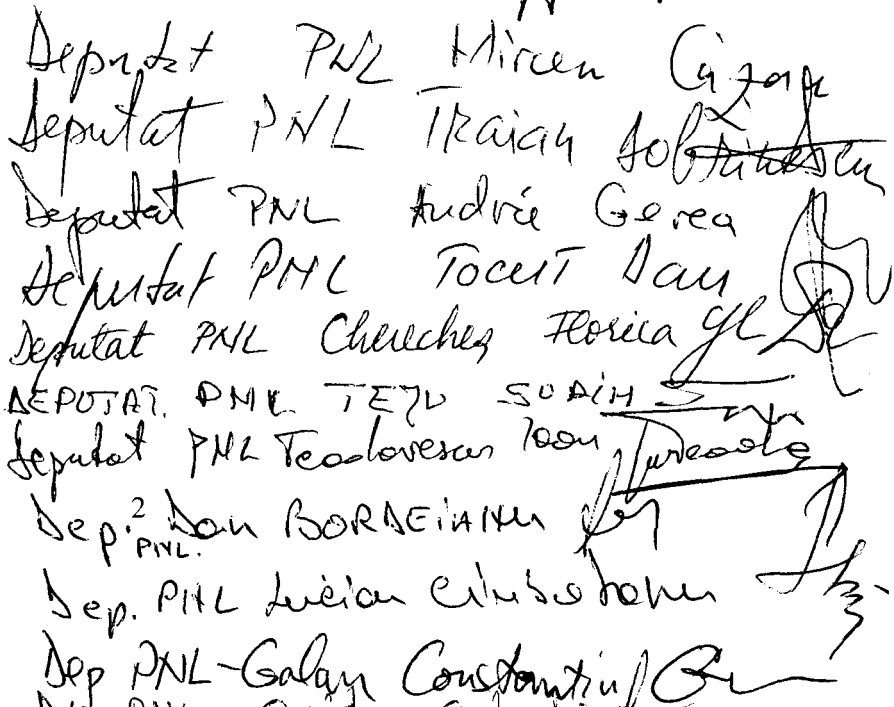 Deputat PNL Mircea Cazan
Deputat PNL Traian Dobrinescu
Deputat PNL Andrei Gerea
Deputat PNL Tocuț Dan
Deputat PNL Cherecheș Florica
DEPUTAT PNL TEJU SORIN
Deputat PNL Teodorescu Ioan
Dep. PNL. Dan BORDEIANU
Dep. PNL Lucian Ciubotaru
Dep PNL-Galan Constantin